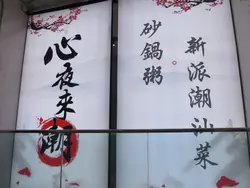 心夜來潮
砂鍋粥
新派潮汕菜